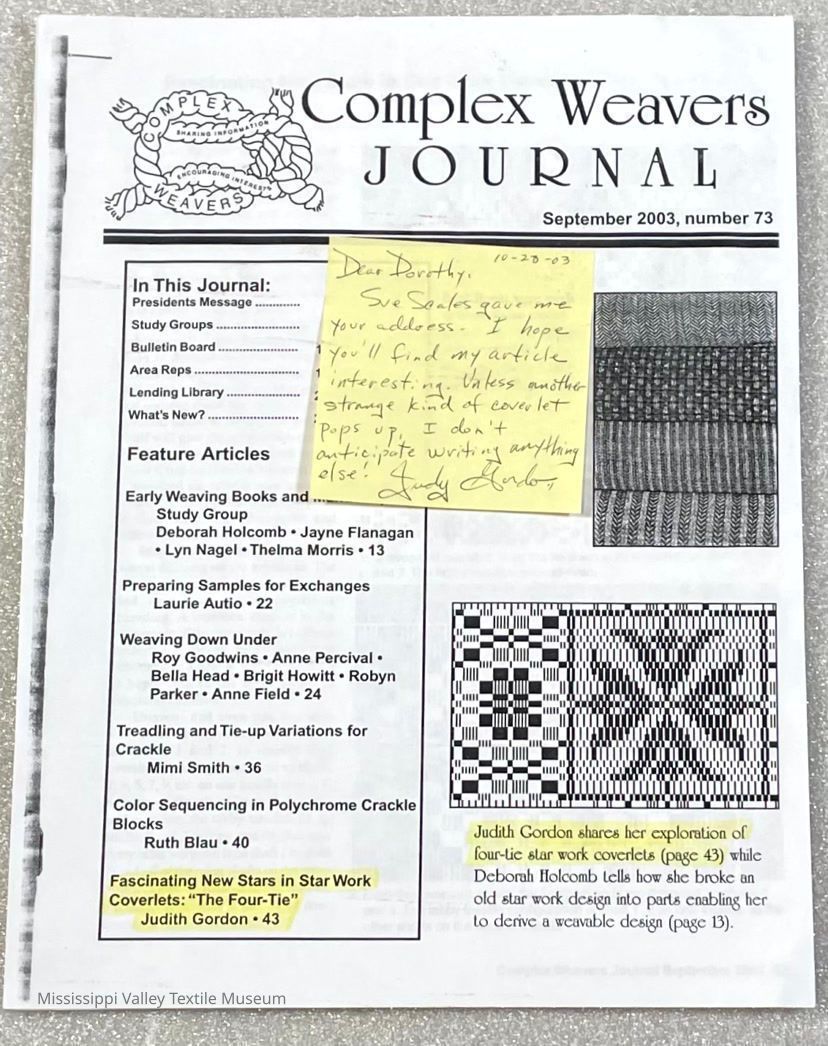 COMPLEX
SHARING INFORMATION
ENCOURAGING INTEREST
WEAVERS
Complex Weavers
JOURNAL
September 2003, number 73
In This Journal:
Presidents Message ............
Study Groups ......................
Bulletin Board .....................
Area Reps ...........................
Lending Library ...................
What's New? ........................
10-28-03
Dear Dorothy,
Sue Scales gave me
your address. I hope
you'll find my article
interesting. Unless another
strange kind of coverlet
pops up, I don't
anticipate writing anything
else! Judy Gordon
Feature Articles
Early Weaving Books and
Study Group
Deborah Holcomb • Jayne Flanagan
• Lyn Nagel • Thelma Morris • 13
Preparing Samples for Exchanges
Laurie Autio • 22
Weaving Down Under
Roy Goodwins • Anne Percival •
Bella Head • Brigit Howitt • Robyn
Parker • Anne Field • 24
Treadling and Tie-up Variations for
Crackle
Mimi Smith • 36
Color Sequencing in Polychrome Crackle
Blocks
Ruth Blau • 40
Fascinating New Stars in Star Work
Coverlets: "The Four-Tie"
Judith Gordon • 43
Judith Gordon shares her exploration of
four-tie star work coverlets (page 43) while
Deborah Holcomb tells how she broke an
old star work design into parts enabling her
to derive a weavable design (page 13).
Mississippi Valley Textile Museum